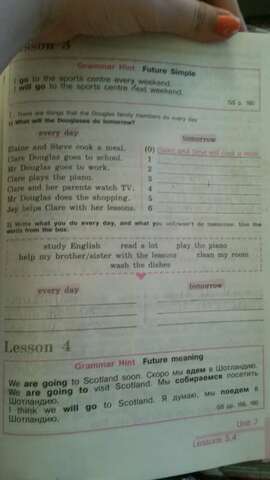 Lesson 3
Grammar Hint Future Simple
I go to the sports centre every weekend.
I will go to the sports centre next weekend.
GS p. 160
1. These are things that the Douglas family members do every day.
1) What will the Douglases do tomorrow?
every day
tomorrow
Elaine and Steve cook a meal. (0) Elaine and Steve will cook a meal.
Clare Douglas goes to school. 1
Mr Douglas goes to work. 2
Clare plays the piano. 3
Clare and her parents watch TV. 4
Mr Douglas does the shopping. 5
Jay helps Clare with her lessons. 6
2) Write what you do every day, and what you will/won't do tomorrow. Use the
words from the box.
study English read a lot play the piano
help my brother/sister with the lessons clean my room
wash the dishes
every day tomorrow
Lesson 4
Grammar Hint Future meaning
We are going to Scotland soon. Скоро мы едем в Шотландию.
We are going to visit Scotland. Мы собираемся посетить
Шотландию.
I think we will go to Scotland. Я думаю, мы поедем в
Шотландию.
GS pp.
Unit 7
Lessons 3,4